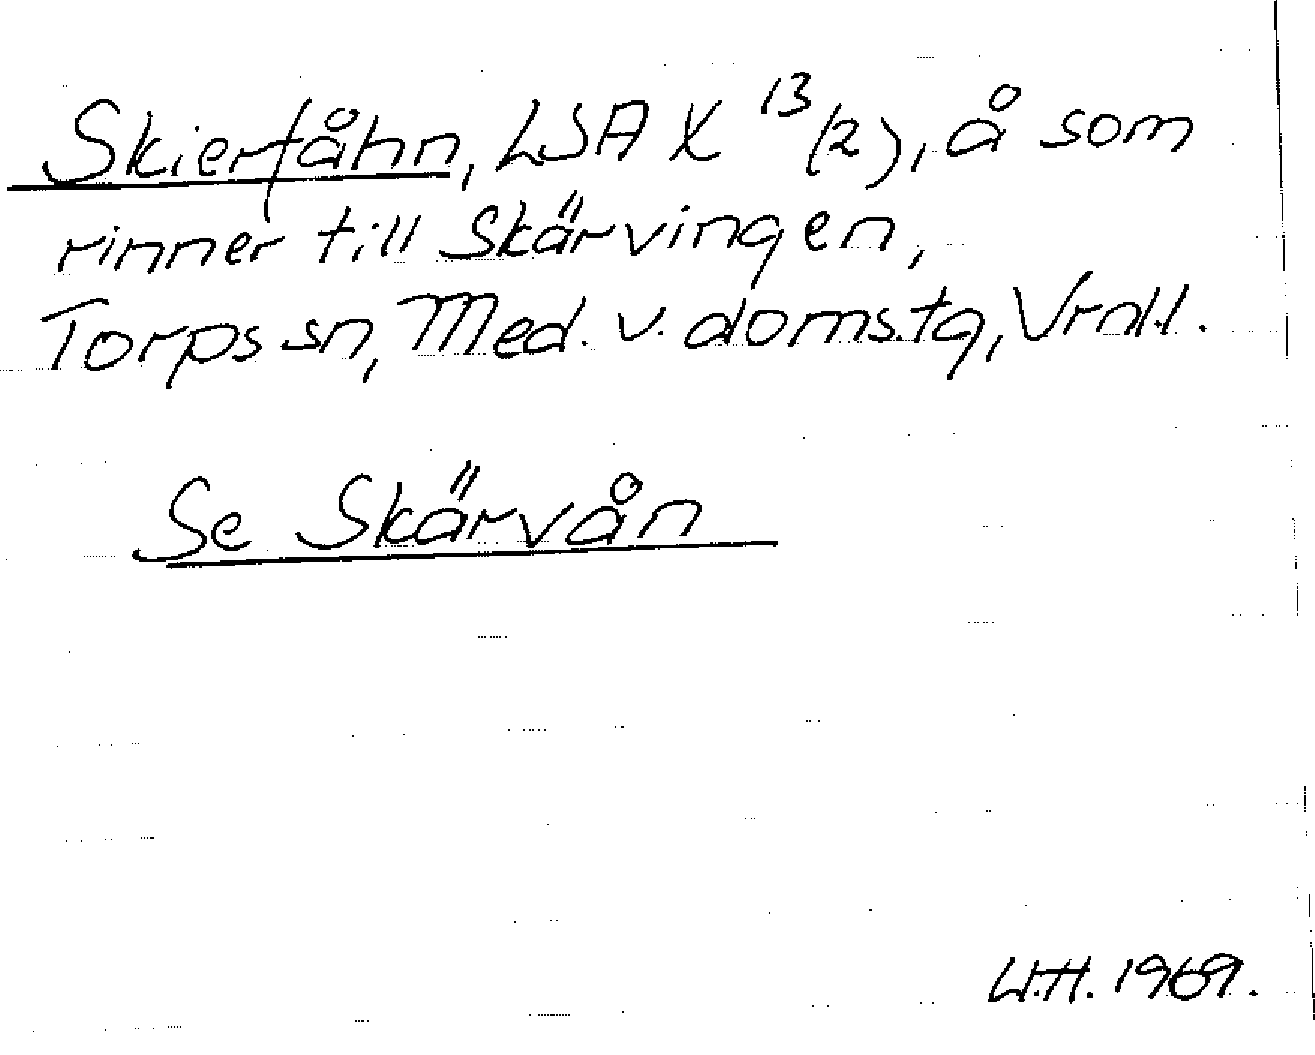 Skierfåhn, LSA X 13/(2), å som
rinner till Skärvingen,
Torps sn, Med. v. doms.tg, Vrnl.l.
Se Skärvån
W.H. 1969.